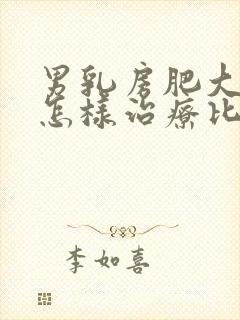 男乳房肥大
怎様治療比
李如喜